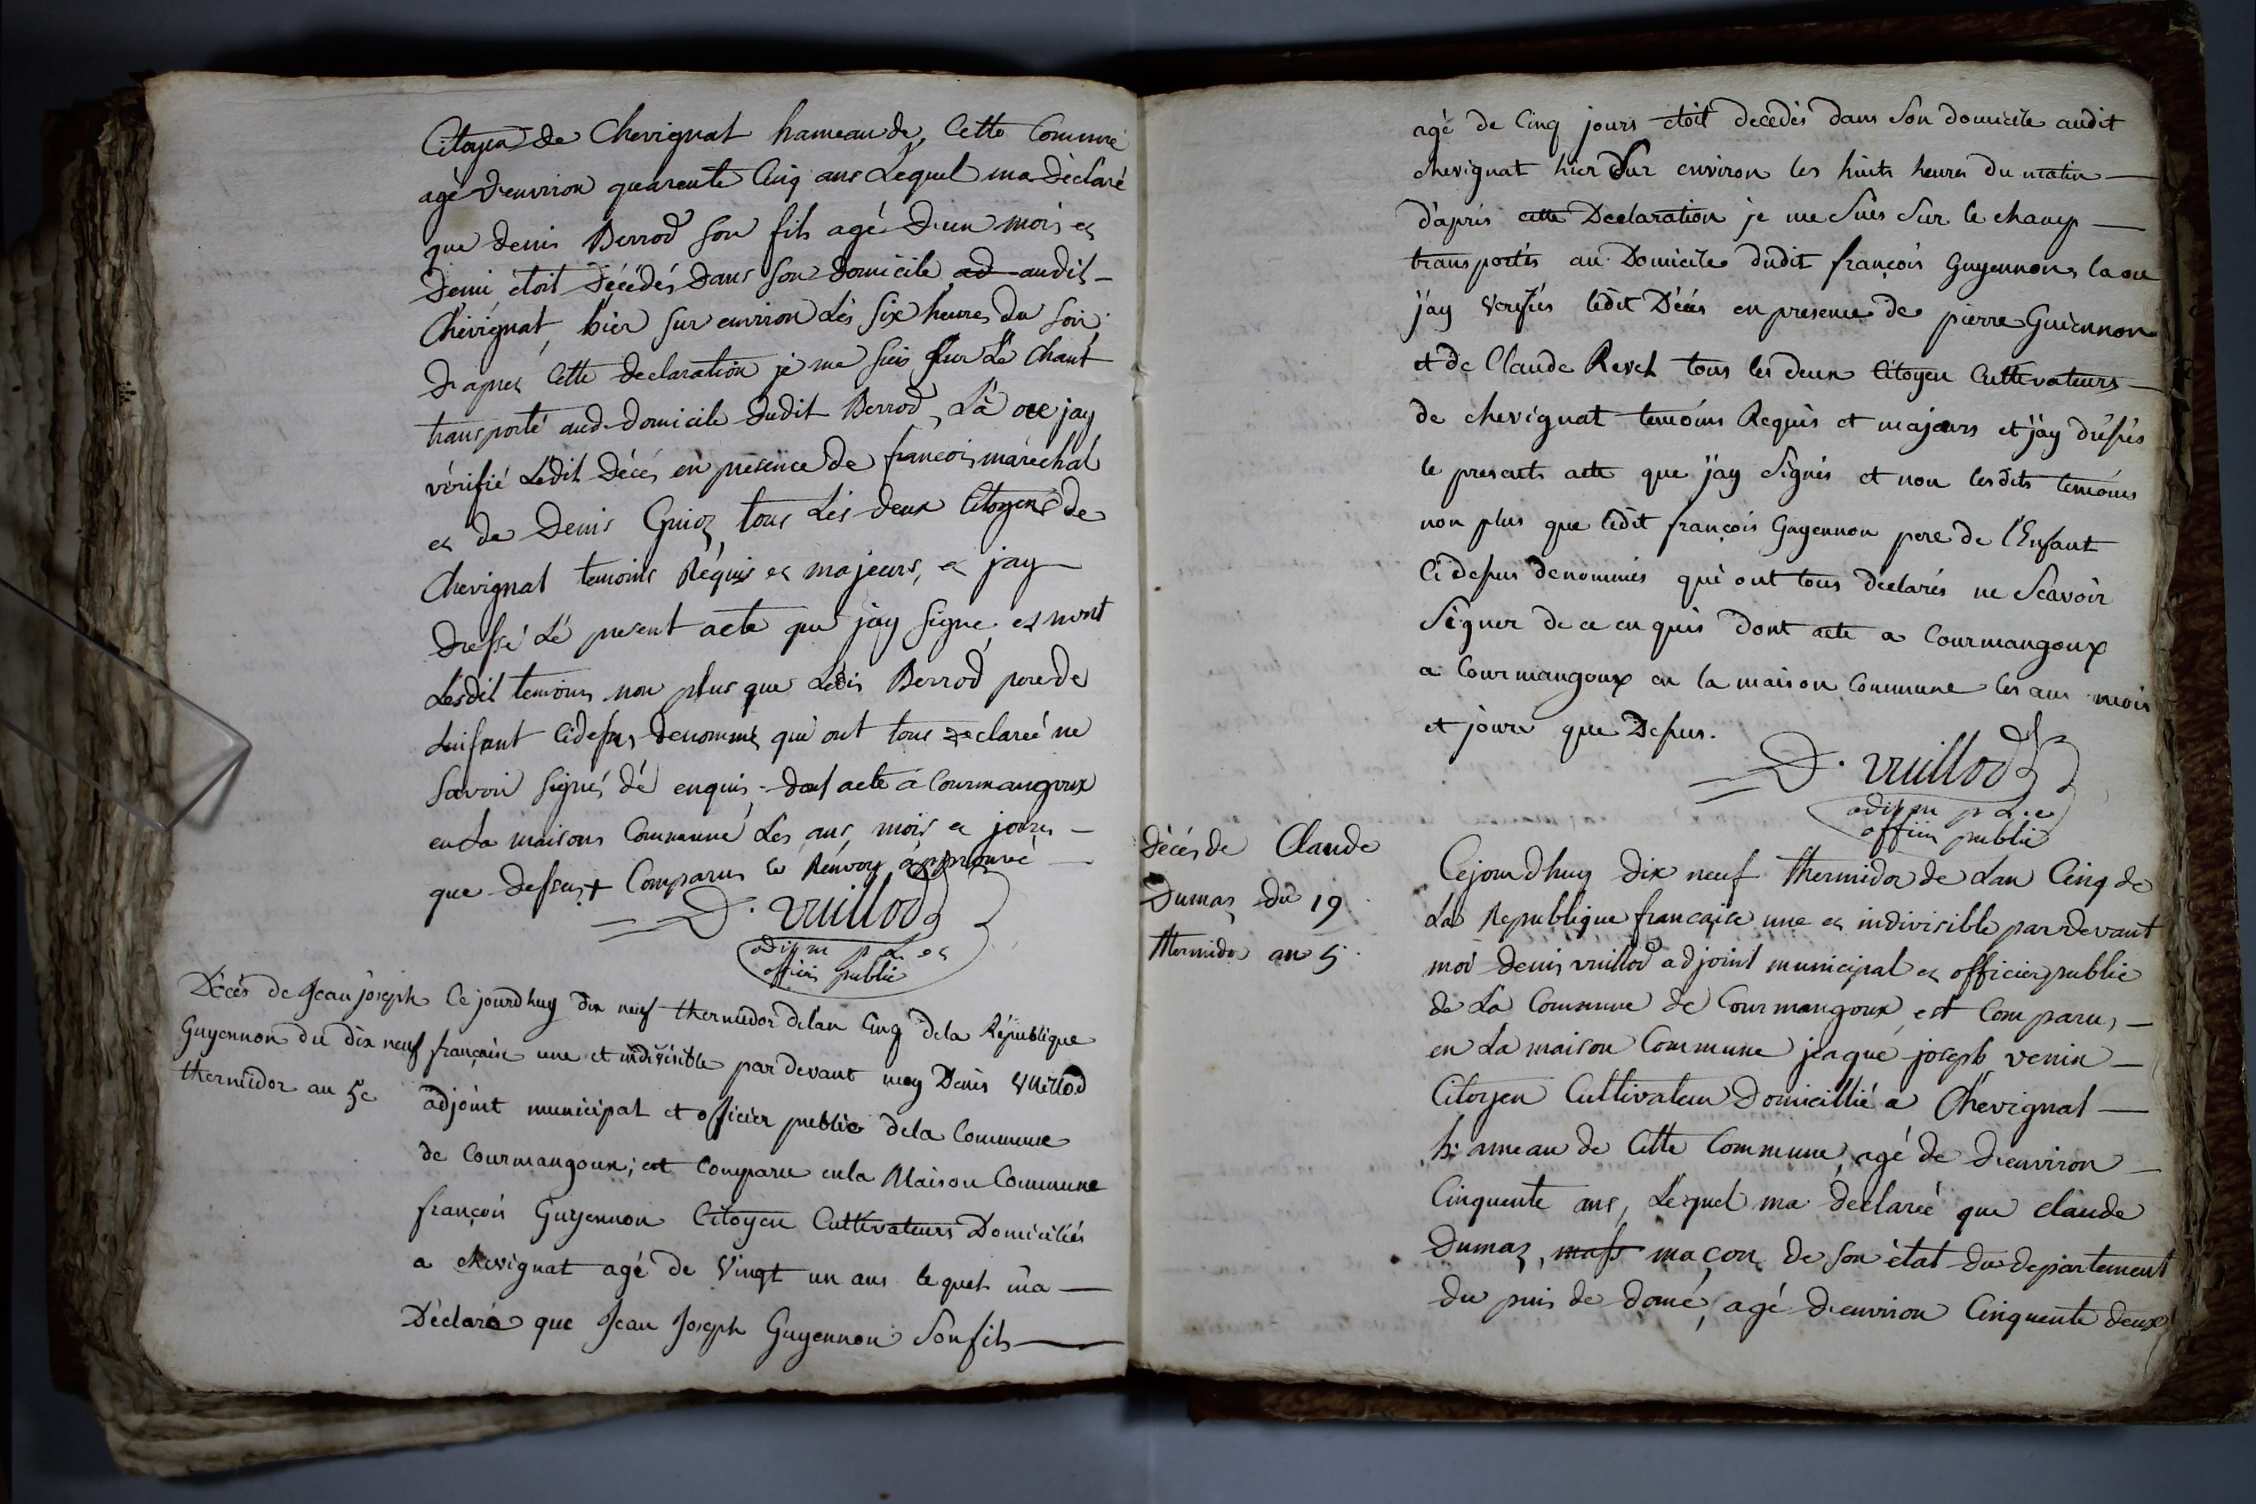 Citoyen de Chevignat hameau de, Cette Commune
agé d'environ quarente Cinq ans Lequel ma déclaré
que denis Berrod son fils agé d'un mois et
demi étoit décédés dans son domicile ad audit
Chevignat, hier sur environ Lés six heures du soir
d'apres Cette declaration je me suis sur Lé Chant
transporté aud. domicile dudit Berrod, Là ou jay
vérifié Ledit décés en presence de francois maréchal
et de Denis Guioz tous Lés deux Citoyens de
Chevignat temoins Réquis et majeurs, et jay
dressé Lé present acte que jay signé et nont
Lesdit temoins non plus que Ledit Berrod pere de
Lenfant Cidessus denommé qui ont tous declareé ne
savoir signés dé enquis, dont acte á Courmangoux
en La maisons Communne Les ans, mois et jours
que dessus + Comparus Renvoy approuvé
D. vuillod
adj m p L et
officier public
Décés de Jean joseph
Guyennon du dix neuf
thermidor an 5e
Ce jourdhuy dix neuf thermidor de lan Cinq de la République
française une et indivisible par devant moy Denis Vuillod
adjoint municipal et officier public de la Commune
de Courmangoux; est comparu en la Maison Commune
françois Guyennon Citoyen Cultivateurs Domiciliés
a chevignat agé de Vingt un ans lequel m'a
Déclaré que Jean Joseph Guyennon Son fils
agé de Cinq jours etoit decedés dans Son domicile audit
chevignat hier Sur environ les huits heures du matin
d'aprés cette Declaration je me Suis Sur le champ
transportés au Domicile dudit françois Guyennon, la ou
j'ay Verifiés ledit Décés en presence de pierre Guiennon
et de Claude Revel tous les deux Citoyen Cultivateurs
de chevignat temoins Requis et majeurs et j'ay dressés
le presents acte que j'ay Signés et non lesdits temoins
non plus que ledit françois Guyennon pere de l'Enfant
Ci dessus denommés qui ont tous declarés ne Scavoir
Signer de ce enquis dont acte a Courmangoux
a Courmangoux en la maison Commune les ans mois
et jours que Dessus.
D. vuillod
adj m p L. e
officier public
Décés de Claude
Dumas du 19
thermidor an 5
Cejourdhuy dix neuf thermidor de Lan Cinq de
La Republique francaise une et indivisible pardevant
moi denis vuillod adjoint municipal et officier public
de La Commune de Courmangoux est Comparu,
en La maison Commune jeaque joseph venin
Citoyen Cultivateur domicillié a Chevignat
hameau de Cette Commune, agé de d'environ
Cinquente ans, Léquel ma declareé que claude
Dumas, mass maçon de son état du departement
du puis de domé, agé d'environ Cinquente deux